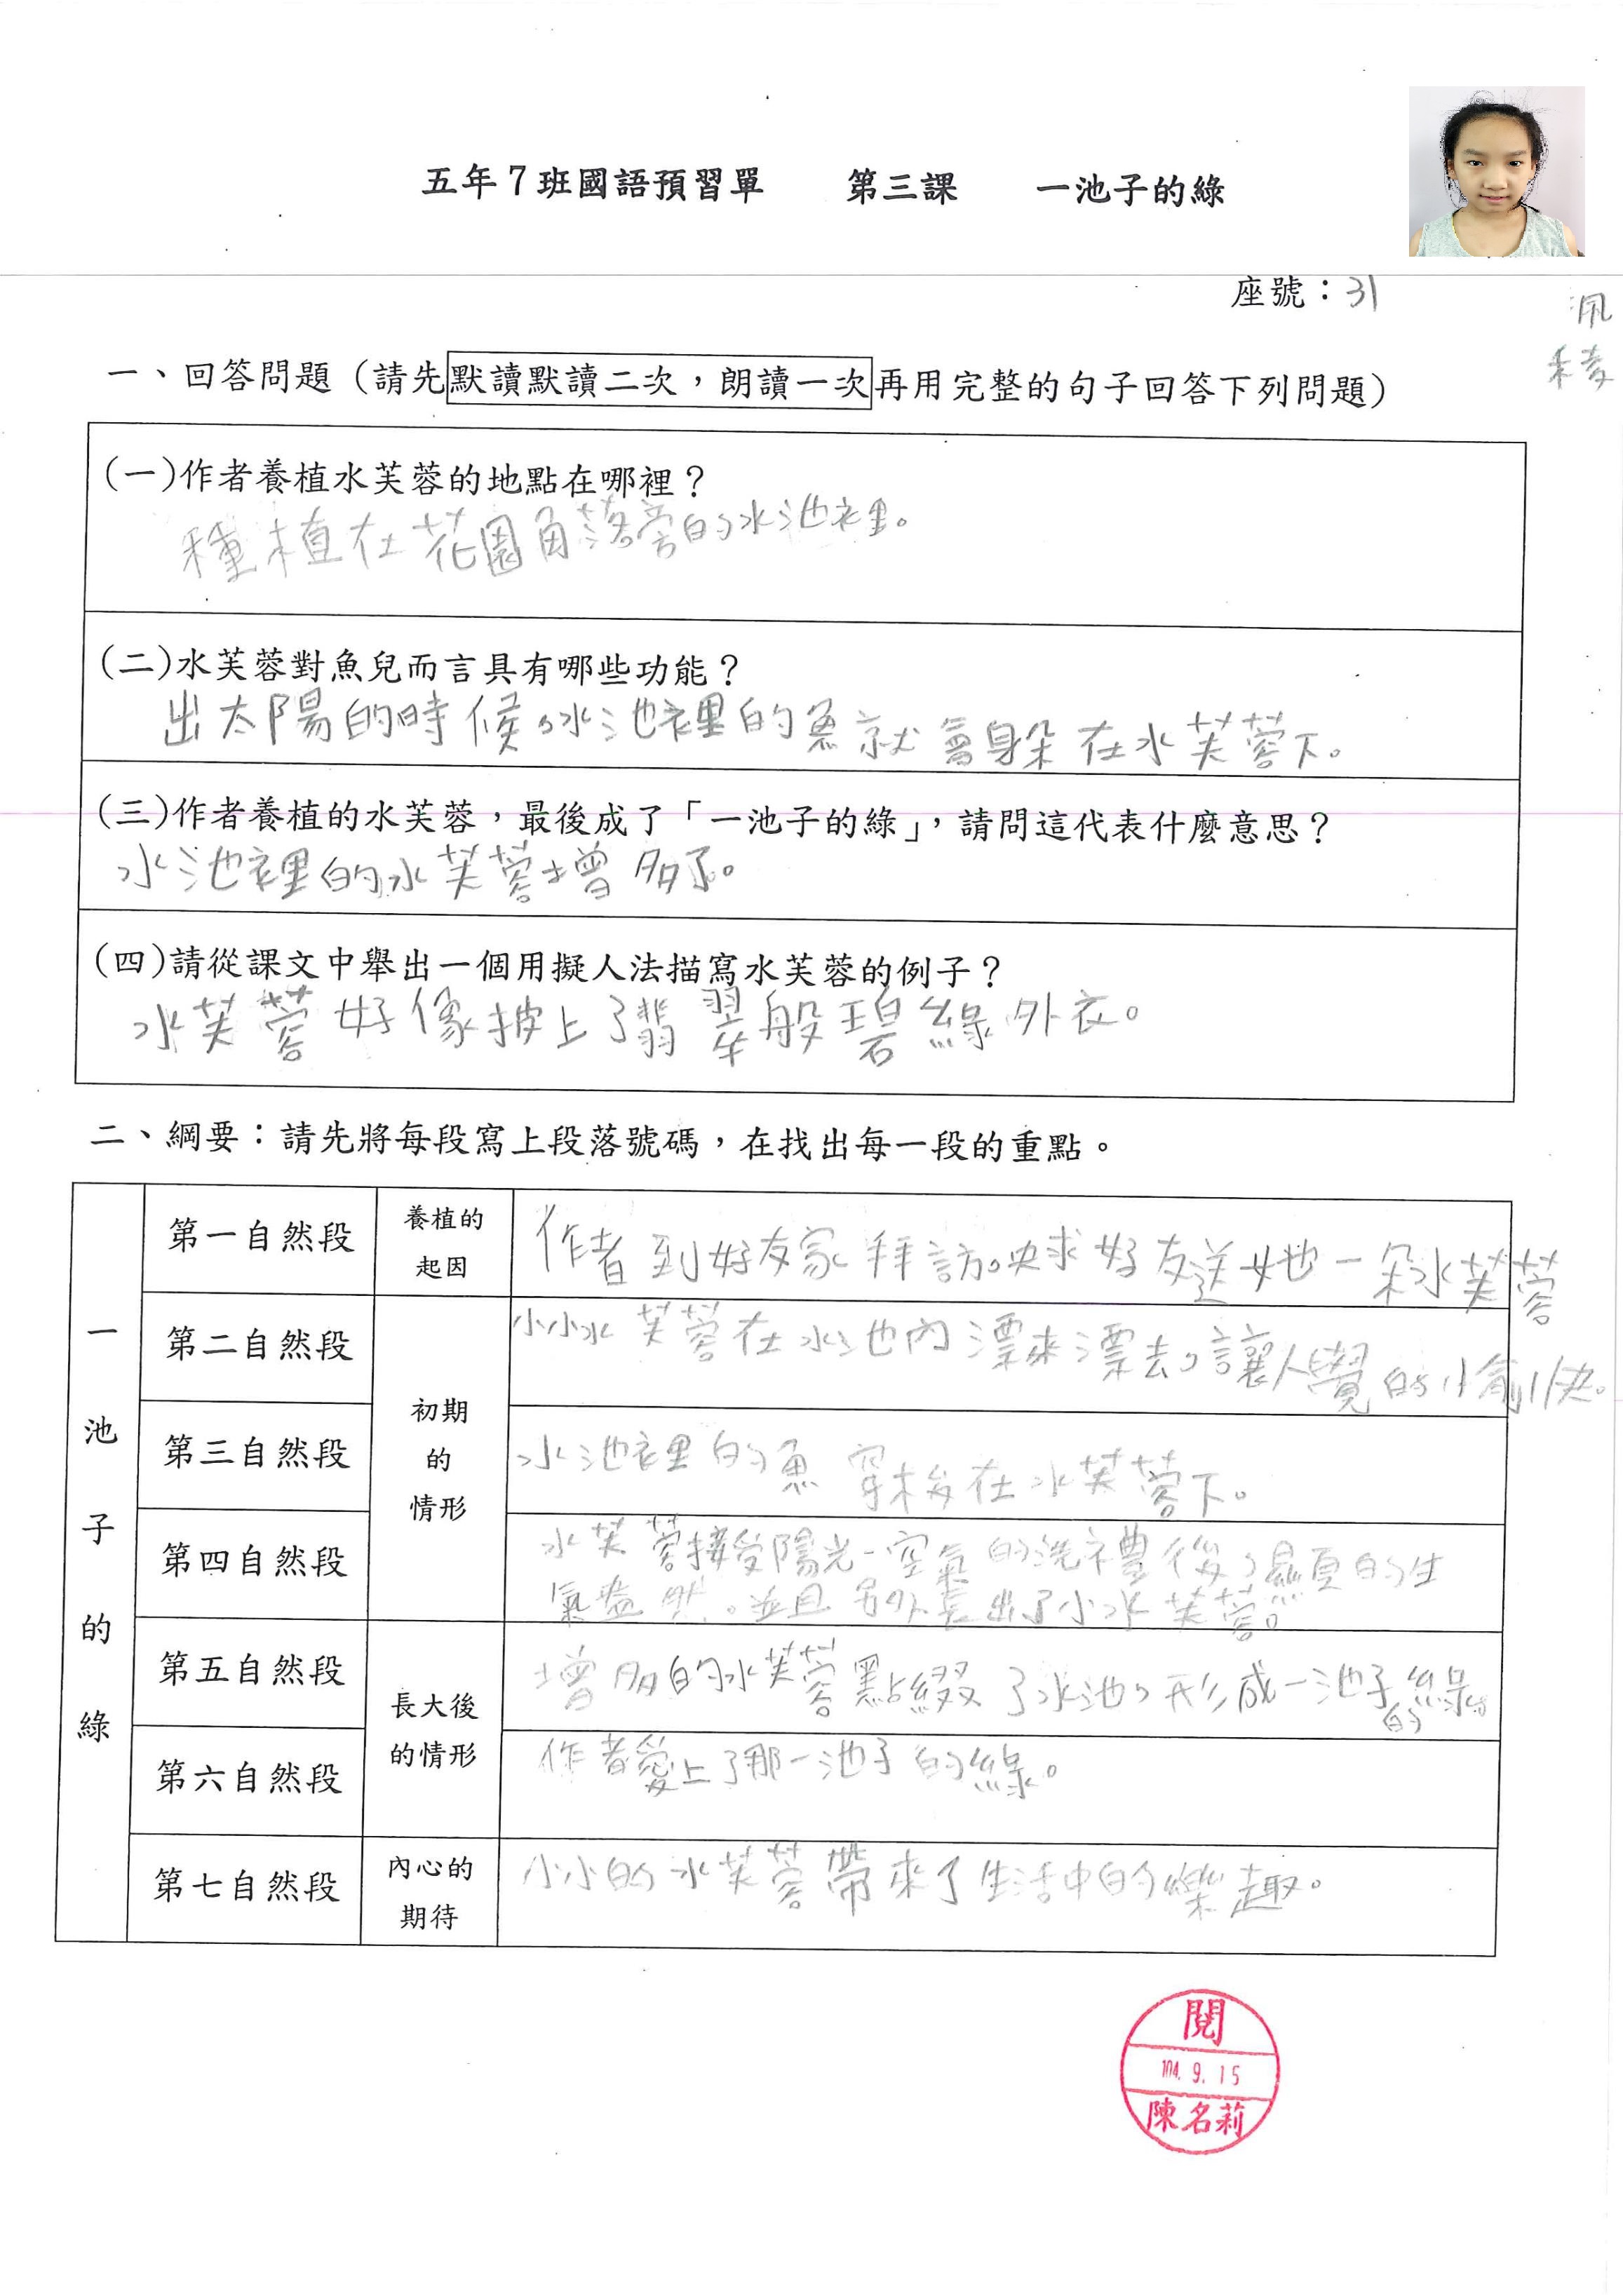 五年7班國語預習單 第三課 一池子的綠
座號：31
一、回答問題（請先默讀默讀二次，朗讀一次再用完整的句子回答下列問題）
(一)作者養植水芙蓉的地點在哪裡？
種植在花園角落旁的水池裡。
(二)水芙蓉對魚兒而言具有哪些功能？
出太陽的時候，水池裡的魚就會躲在水芙蓉下。
(三)作者養植的水芙蓉，最後成了「一池子的綠」，請問這代表什麼意思？
水池裡的水芙蓉增多了。
(四)請從課文中舉出一個用擬人法描寫水芙蓉的例子？
水芙蓉好像披上了翡翠般碧綠外衣。
二、綱要：請先將每段寫上段落號碼，在找出每一段的重點。
一池子的綠
第一自然段 養植的起因 作者到好友家拜訪。央求好友送她一朵水芙蓉
第二自然段 初期的情形 小小水芙蓉在水池內漂來漂去，讓人覺的愉快。
第三自然段 水池裡的魚穿梭在水芙蓉下。
第四自然段 水芙蓉接受陽光、空氣的洗禮後，顯的生
氣盎然。並且另外長出了小水芙蓉。
第五自然段 長大後的情形 增多的水芙蓉點綴了水池，形成一池子的綠。
第六自然段 作者愛上了那一池子的綠。
第七自然段 內心的期待 小小的水芙蓉帶來了生活中的樂趣。
閱
104. 9. 15
陳名莉